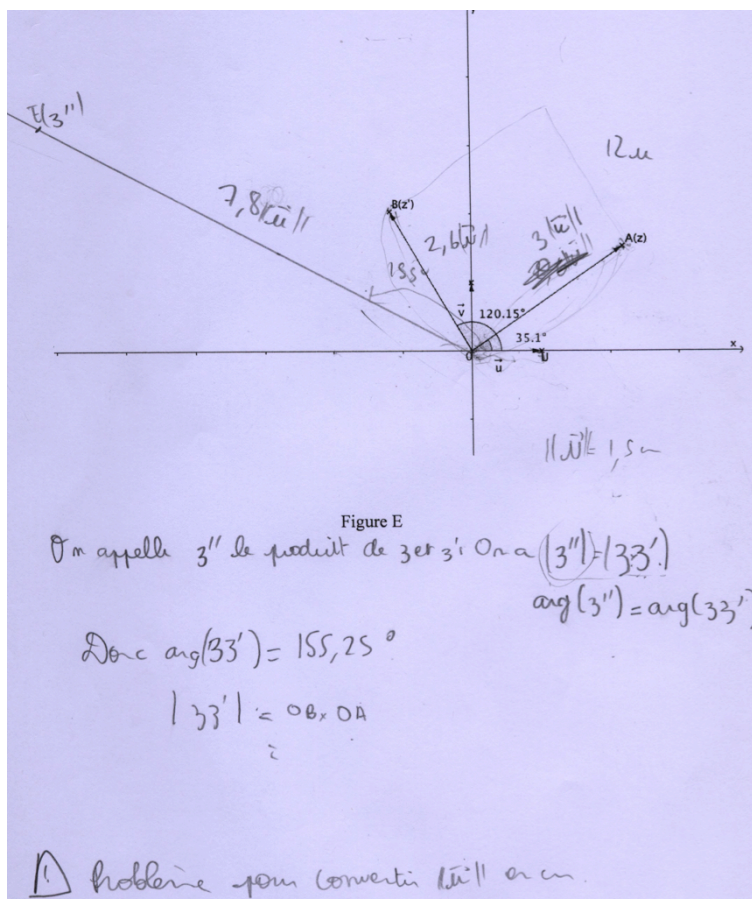 y
E(z'')
12u
7,8||u||
B(z')
2,6||u||
3||u||
A(z)
155°
v
120.15°
35.1°
x
O
u
U
||u|| = 1,5cm
Figure E
On appelle z'' le produit de z et z'. On a |z''|=|zz'|
arg(z'') = arg(zz')
Donc arg(zz') = 155,25°
|zz'| = OB x OA
=
! Problème pour convertir ||u|| en cm.